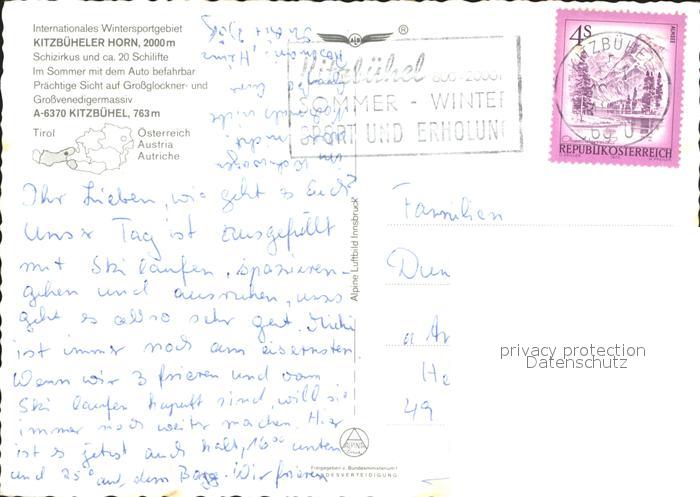 Internationales Wintersportgebiet
KITZBÜHELER HORN, 2000 m
Schizirkus und ca. 20 Schilifte
Im Sommer mit dem Auto befahrbar
Prächtige Sicht auf Großglockner- und
Großvenedigermassiv
A-6370 KITZBÜHEL, 763 m
Tirol
Österreich
Austria
Autriche
®
Kitzbühel 800-2000m
SOMMER - WINTER
SPORT UND ERHOLUNG
4S
KITZBÜHEL
REPUBLIK ÖSTERREICH
Ihr Lieben, wie geht's Euch?
Unser Tag ist ausgefüllt
mit Ski laufen, spazieren-
gehen und ausruhen, uns
geht es also sehr gut. Michi
ist immer noch am eisernsten.
Wenn wir 3 frieren und vom
Ski laufen kaputt sind, will sie
immer noch weiter machen. Hier
ist es jetzt auch kalt, 16° unten
und 25° auf dem Berg. Wir frieren
Alpine Luftbild Innsbruck
ALPINE
Freigegeben v. Bundesministerium f.
LANDESVERTEIDIGUNG
Familien
Dun
a Ar
He
49
privacy protection
Datenschutz